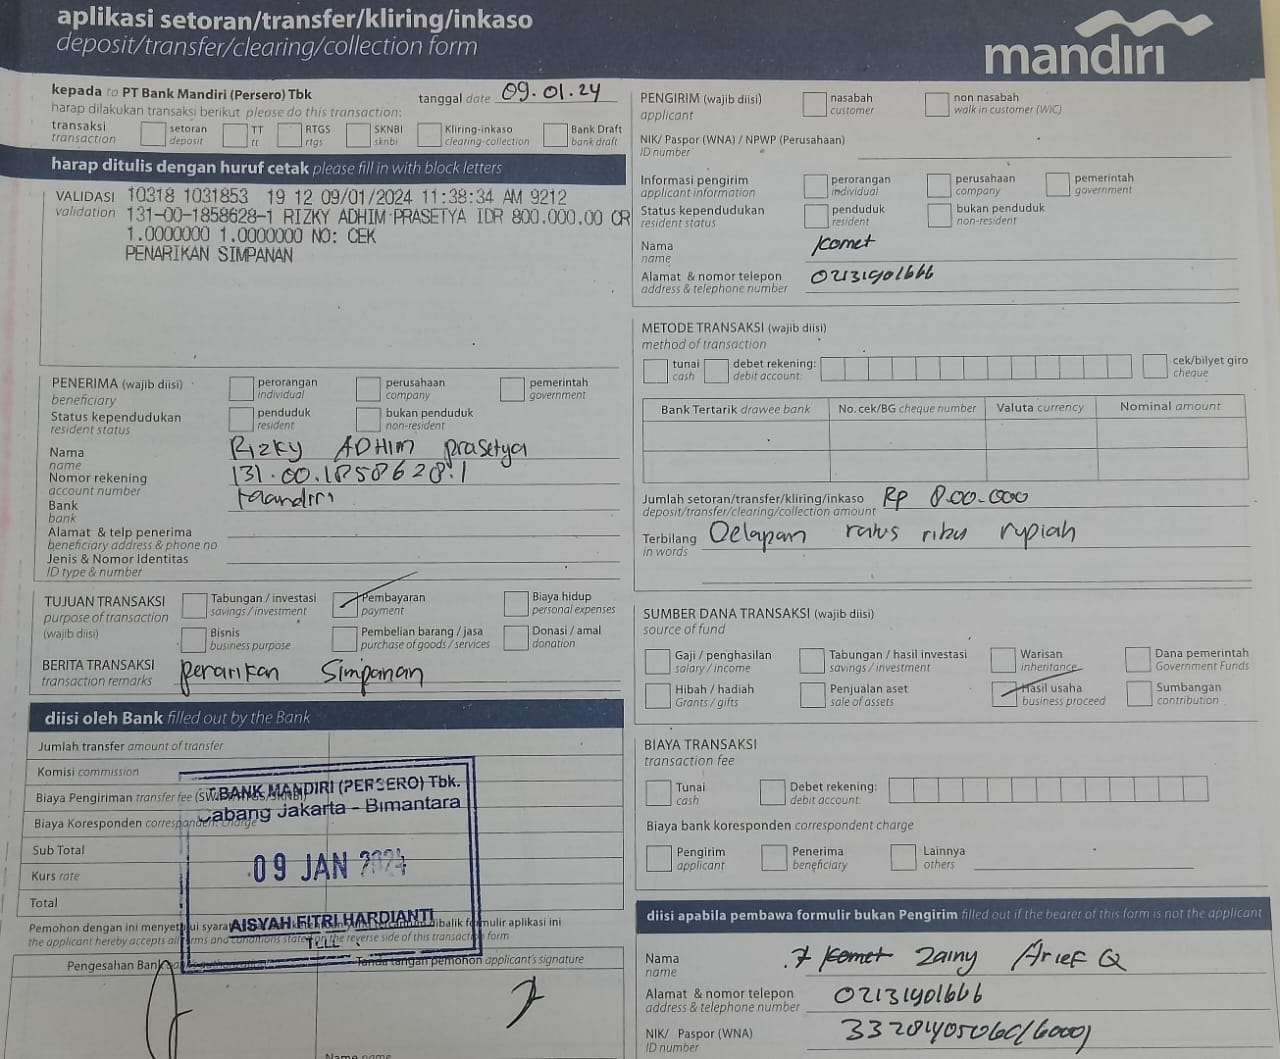 aplikasi setoran/transfer/kliring/inkaso
deposit/transfer/clearing/collection form
mandiri
kepada to PT Bank Mandiri (Persero) Tbk
tanggal date 09.01.24
harap dilakukan transaksi berikut please do this transaction:
transaksi transaction
setoran deposit
TT tt
RTGS rtgs
SKNBI sknbi
Kliring-inkaso clearing-collection
Bank Draft bank draft
harap ditulis dengan huruf cetak please fill in with block letters
VALIDASI validation
10318 1031853 19 12 09/01/2024 11:38:34 AM 9212
131-00-1858628-1 RIZKY ADHIM PRASETYA IDR 800.000.00 CR
1.0000000 1.0000000 NO: CEK
PENARIKAN SIMPANAN
PENERIMA (wajib diisi) beneficiary
perorangan individual
perusahaan company
pemerintah government
Status kependudukan resident status
penduduk resident
bukan penduduk non-resident
Nama name Rizky ADHIM prasetya
Nomor rekening account number 131.00.1858628.1
Bank bank Mandiri
Alamat & telp penerima
beneficiary address & phone no
Jenis & Nomor Identitas
ID type & number
TUJUAN TRANSAKSI
purpose of transaction
(wajib diisi)
Tabungan / investasi savings / investment
Pembayaran payment
Biaya hidup personal expenses
Bisnis business purpose
Pembelian barang / jasa purchase of goods / services
Donasi / amal donation
BERITA TRANSAKSI transaction remarks
penarikan Simpanan
diisi oleh Bank filled out by the Bank
Jumlah transfer amount of transfer
Komisi commission
Biaya Pengiriman transfer fee
Biaya Koresponden correspondent charge
Sub Total
Kurs rate
Total
BANK MANDIRI (PERSERO) Tbk.
Cabang Jakarta - Bimantara
09 JAN 2024
AISYAH FITRI HARDIANTI
Pemohon dengan ini menyetujui dibalik formulir aplikasi ini
the applicant hereby accepts all terms and conditions stated on the reverse side of this transaction form
Pengesahan Bank
Tanda tangan pemohon applicant's signature
Nama name
PENGIRIM (wajib diisi) applicant
nasabah customer
non nasabah walk in customer (WIC)
NIK/ Paspor (WNA) / NPWP (Perusahaan)
ID number
Informasi pengirim applicant information
perorangan individual
perusahaan company
pemerintah government
Status kependudukan resident status
penduduk resident
bukan penduduk non-resident
Nama name Komet
Alamat & nomor telepon address & telephone number 02131901666
METODE TRANSAKSI (wajib diisi)
method of transaction
tunai cash
debet rekening: debit account:
cek/bilyet giro cheque
Bank Tertarik drawee bank
No. cek/BG cheque number
Valuta currency
Nominal amount
Jumlah setoran/transfer/kliring/inkaso
deposit/transfer/clearing/collection amount
Rp 800.000
Terbilang in words
Delapan ratus ribu rupiah
SUMBER DANA TRANSAKSI (wajib diisi)
source of fund
Gaji / penghasilan salary / income
Tabungan / hasil investasi savings / investment
Warisan inheritance
Dana pemerintah Government Funds
Hibah / hadiah Grants / gifts
Penjualan aset sale of assets
Hasil usaha business proceed
Sumbangan contribution
BIAYA TRANSAKSI
transaction fee
Tunai cash
Debet rekening: debit account:
Biaya bank koresponden correspondent charge
Pengirim applicant
Penerima beneficiary
Lainnya others
diisi apabila pembawa formulir bukan Pengirim filled out if the bearer of this form is not the applicant
Nama name Komet Zainy Arief Q
Alamat & nomor telepon address & telephone number 02131901666
NIK/ Paspor (WNA)
ID number